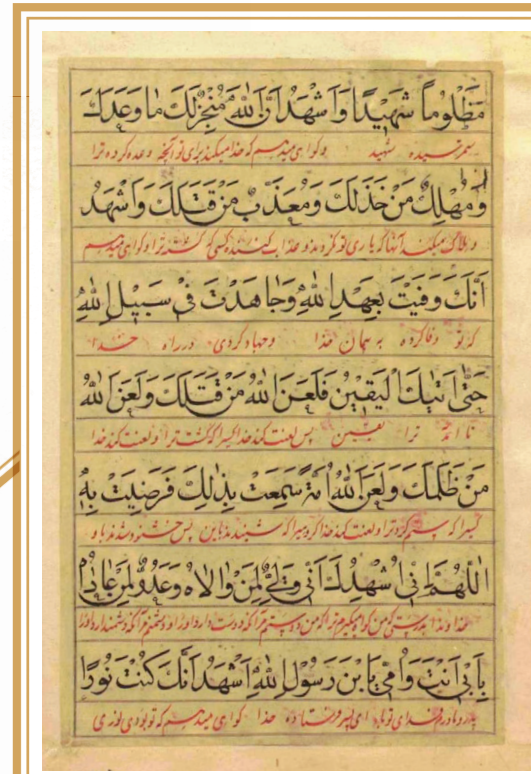 مَظْلُوماً شَهِيدًا وَاَشْهَدُ اَنَّ اللهَ مُنْجِزٌ لَكَ مٰا وَعَدَكَ
ستم رسیده شهید و گواهی میدهم که خدا میکند برای تو آنچه وعده کرده ترا
وَمُهْلِكٌ مَنْ خَذَلَكَ وَمُعَذِّبٌ مَنْ قَتَلَكَ وَاَشْهَدُ
و هلاک میکند آنها که یاری تو نکردند و عذاب کننده کسی که کشته ترا و گواهی میدهم
اَنَّكَ وَفَيْتَ بِعَهْدِ اللهِ وَجٰاهَدْتَ فِي سَبِيلِ اللهِ
که تو وفا کرده به پیمان خدا وجهاد کردی در راه خدا
حَتّٰى اَتٰيكَ الْيَقِينُ فَلَعَنَ اللهُ مَنْ قَتَلَكَ وَلَعَنَ اللهُ
تا آمد ترا یقین پس لعنت کند خدا کسیرا که کشت ترا و لعنت کند خدا
مَنْ ظَلَمَكَ وَلَعَنَ اللهُ اُمَّةً سَمِعَتْ بِذٰلِكَ فَرَضِيَتْ بِهِ
کسیرا که ستم کرد ترا و لعنت کند خدا گروهیرا که شنیدند باین پس خشنود شدند باو
اَللّٰهُمَّ اِنِّي اُشْهِدُكَ اَنِّي وَلِيٌّ لِمَنْ وٰالاٰهُ وَعَدُوٌّ لِمَنْ عٰادٰاهُ
خداوندا بدرستی که من گواه میگیرم ترا که من دوستم مر آنکه دوست دارد او را و دشمنم مر آنکه دشمن دارد او را
بِاَبِي اَنْتَ وَاُمِّي يَا بْنَ رَسُولِ اللهِ اَشْهَدُ اَنَّكَ كُنْتَ نُورًا
پدر و مادرم فدای تو باد ای پسر فرستاده خدا گواهی میدهم که تو بودی نوری